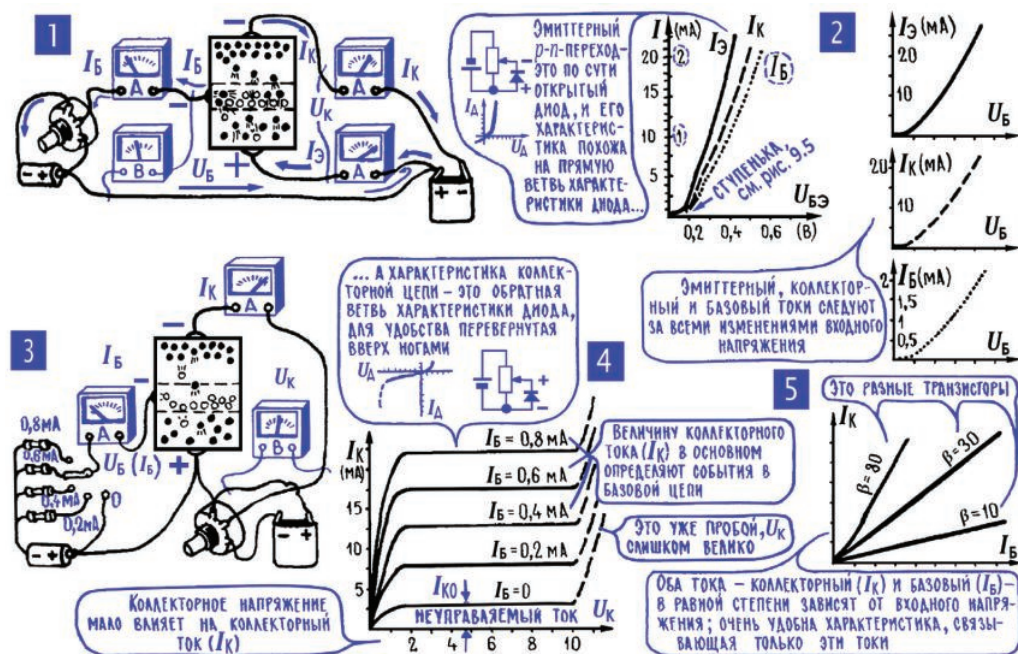 1
Iб
Iб
A
B
Uб
–
–
+
Iк
Uк
Iк
A
Iэ
A
+ –
ЭМИТТЕРНЫЙ
p-n-ПЕРЕХОД–
ЭТО ПО СУТИ
ОТКРЫТЫЙ
ДИОД, И ЕГО
ХАРАКТЕРИС-
ТИКА ПОХОЖА
НА ПРЯМУЮ
ВЕТВЬ ХАРАКТЕ-
РИСТИКИ ДИОДА...
Iд
Uд
–
+
I (МА)
Iэ
Iк
Iб
20
15
10
5
(2)
(1)
СТУПЕНЬКА,
СМ. РИС. 9.5
Uбэ
0,2 0,4 0,6 (В)
2
Iэ(МА)
20
10
Uб
Iк(МА)
20
10
Uб
2
Iб(МА)
1,5
1
0,5
Uб
ЭМИТТЕРНЫЙ, КОЛЛЕКТОР-
НЫЙ И БАЗОВЫЙ ТОКИ СЛЕДУЮТ
ЗА ВСЕМИ ИЗМЕНЕНИЯМИ ВХОДНОГО
НАПРЯЖЕНИЯ
3
Iк
A
–
Iб
–
A
Uк
B
0,8МА
0,8МА
0,4МА
0,2МА
0
Uб (Iб) +
– +
– +
... А ХАРАКТЕРИСТИКА КОЛЛЕК-
ТОРНОЙ ЦЕПИ – ЭТО ОБРАТНАЯ
ВЕТВЬ ХАРАКТЕРИСТИКИ ДИОДА,
ДЛЯ УДОБСТВА ПЕРЕВЕРНУТАЯ
ВВЕРХ НОГАМИ
Uд
Iд
+
–
4
Iк
(МА)
20
15
10
5
Iб = 0,8 МА
Iб = 0,6 МА
Iб = 0,4 МА
Iб = 0,2 МА
Iб = 0
Iко
НЕУПРАВЛЯЕМЫЙ ТОК
Uк
2 4 6 8 10
ВЕЛИЧИНУ КОЛЛЕКТОРНОГО
ТОКА (Iк) В ОСНОВНОМ
ОПРЕДЕЛЯЮТ СОБЫТИЯ В
БАЗОВОЙ ЦЕПИ
ЭТО УЖЕ ПРОБОЙ, Uк
СЛИШКОМ ВЕЛИКО
КОЛЛЕКТОРНОЕ НАПРЯЖЕНИЕ
МАЛО ВЛИЯЕТ НА КОЛЛЕКТОРНЫЙ
ТОК (Iк)
5
ЭТО РАЗНЫЕ ТРАНЗИСТОРЫ
Iк
β=80
β=30
β=10
Iб
ОБА ТОКА – КОЛЛЕКТОРНЫЙ (Iк) И БАЗОВЫЙ (Iб)–
В РАВНОЙ СТЕПЕНИ ЗАВИСЯТ ОТ ВХОДНОГО НАПРЯ-
ЖЕНИЯ; ОЧЕНЬ УДОБНА ХАРАКТЕРИСТИКА, СВЯЗЫ-
ВАЮЩАЯ ТОЛЬКО ЭТИ ТОКИ